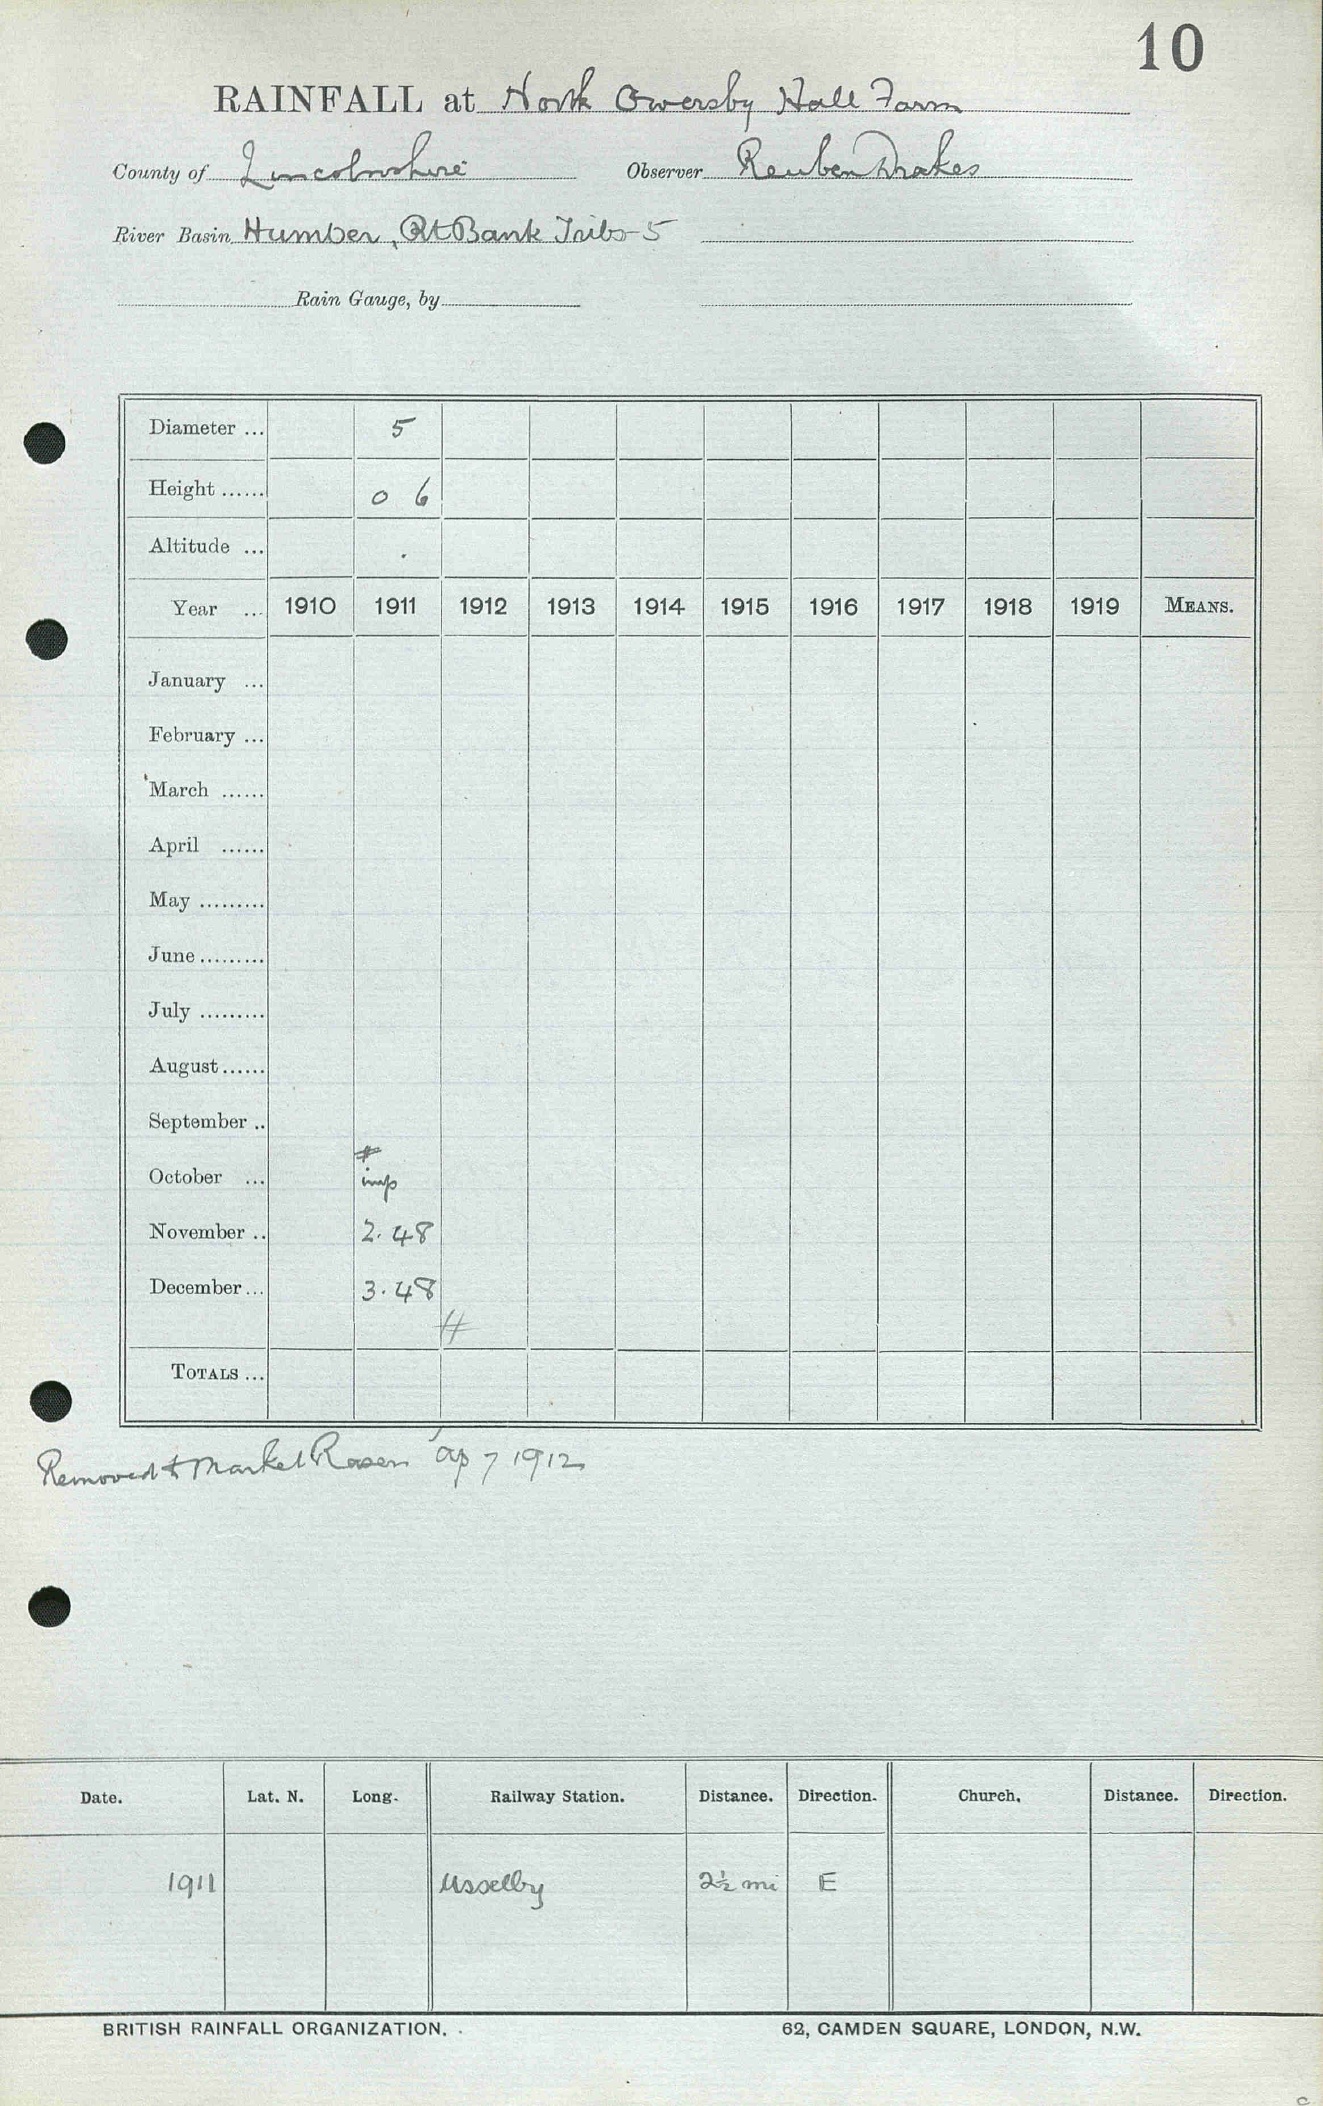 10
RAINFALL at North Owersby Hall Farm
County of Lincolnshire Observer Reuben Drakes
River Basin Humber, Rt Bank Tribs-5
Rain Gauge, by
Diameter ... 5
Height ...... 0 6
Altitude ...
Year ... 1910 1911 1912 1913 1914 1915 1916 1917 1918 1919 MEANS.
January ...
February ...
March ......
April ......
May .........
June .........
July .........
August ......
September ..
#
October ... imp
November .. 2.48
December ... 3.48
#
TOTALS ...
Removed to Market Rasen Ap 7 1912
Date. Lat. N. Long. Railway Station. Distance. Direction. Church. Distance. Direction.
1911 Usselby 2½ mi E
BRITISH RAINFALL ORGANIZATION. 62, CAMDEN SQUARE, LONDON, N.W.